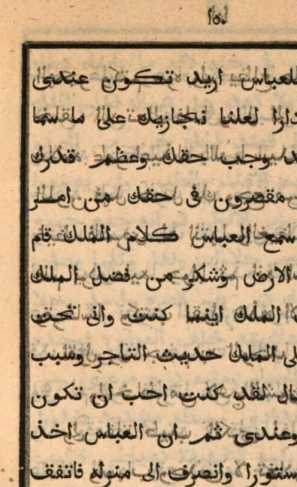 للعباس اريد تكون عندي
دارا لعلنا نجازيك على ما
وجب حقك وعظم قدرك
مقصرون في حقك من امر
سمع العباس كلام الملك قام
الارض وشكر من فضل الملك
الملك اينما كنت واني تحت
الملك حديث التاجر وسبب
قال لقد كنت احب ان تكون
وعندي ثم ان العباس اخذ
دستورا وانصرف الى منزله فاتفق